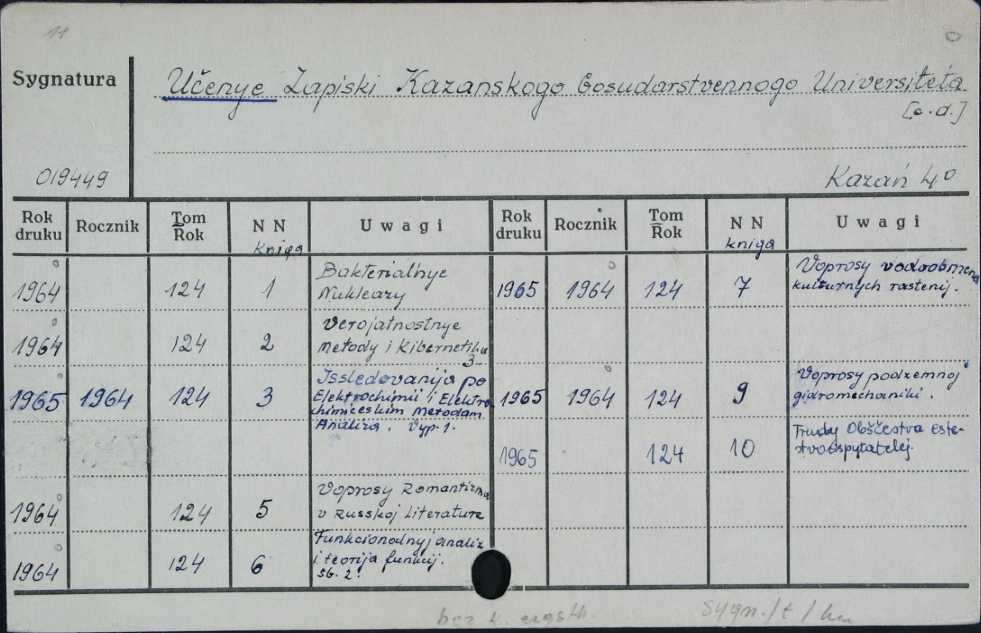 11
Sygnatura
Učenye Zapiski Kazanskogo Gosudarstvennogo Universiteta
[c.d.]
019449
Kazań 4°
Rok druku Rocznik Tom Rok N N kniga Uwagi
1964 124 1 Bakterialnye
Nukleazy
1964 124 2 Verojatnostnye
Metody i Kibernetika
3
1965 1964 124 3 Issledovanija po
Elektrochimii i Elektro
chimičeskim Metodam
Analiza. Vyp. 1.
1964 124 5 Voprosy Romantizma
v Russkoj Literature
1964 124 6 Funkcionalnyj analiz
i teorija funkcij.
Sb. 2.
Rok druku Rocznik Tom Rok N N kniga Uwagi
1965 1964 124 7 Voprosy vodoobmena
kulturnych rastenij.
1965 1964 124 9 Voprosy podzemnoj
gidromechaniki.
1965 124 10 Trudy Obščestva este-
stvoispytatelej.
bez k.
Sygn./t/